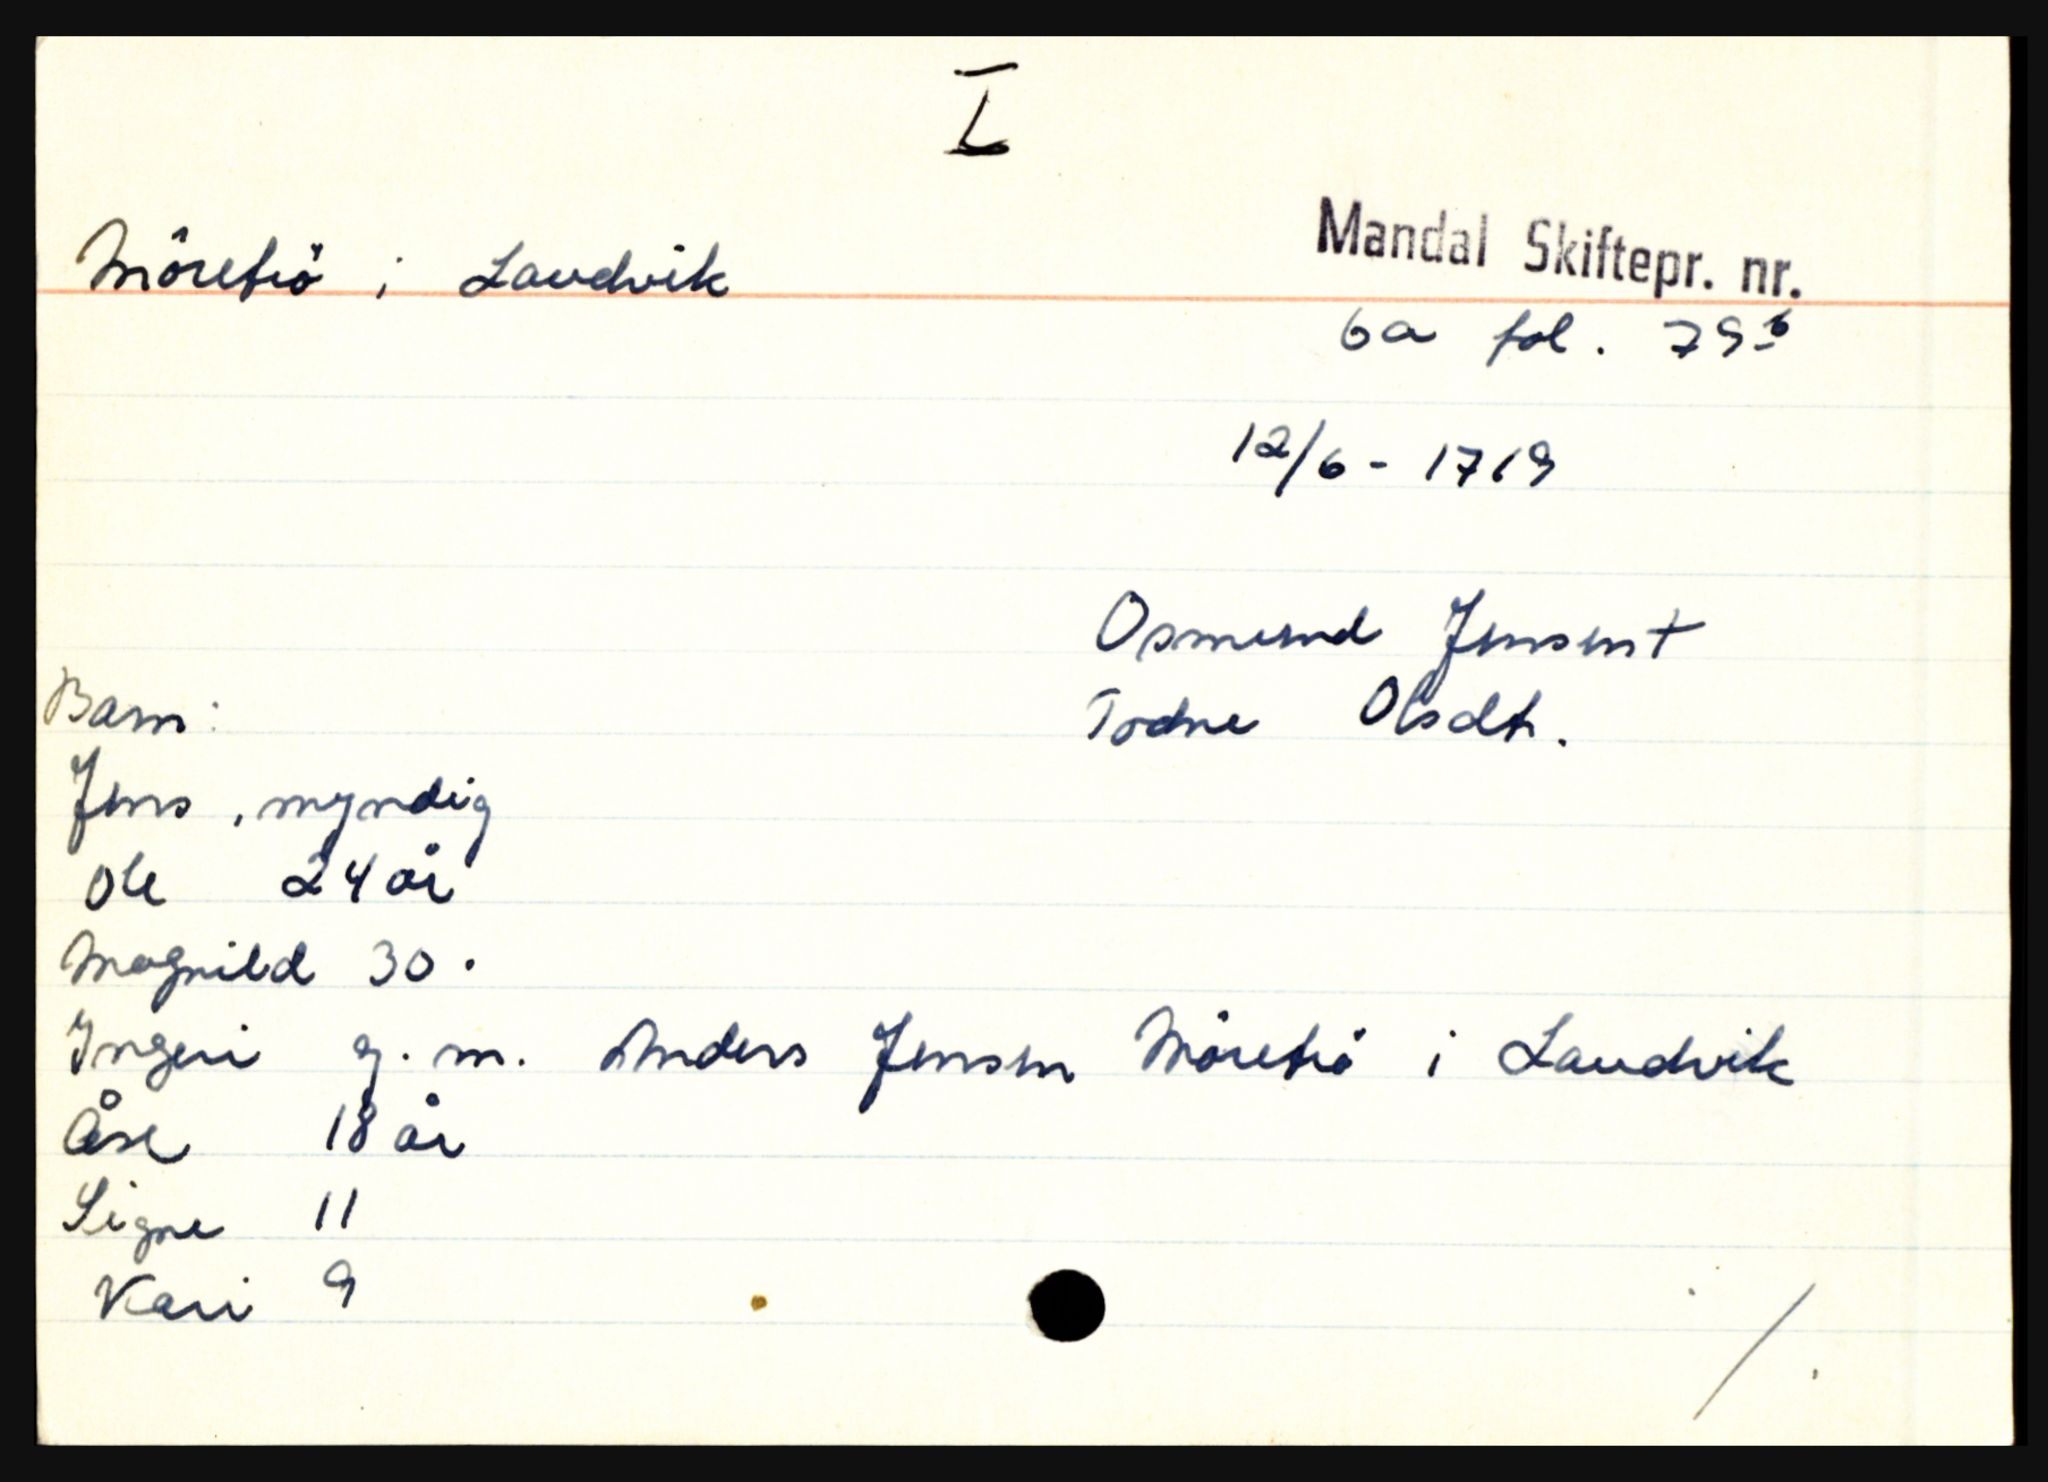 I
Mörefiö i Laudvik
Mandal Skiftepr. nr.
6a fol. 79b
12/6 - 1719
Osmund Jensen †
Todne Olsdt.
Barn:
Jens, myndig
Ole 24 år
Magnild 30.
Ingeri g. m. Anders Jensen Mörefiö i Laudvik
Åse 18 år
Signe 11
Kari 9